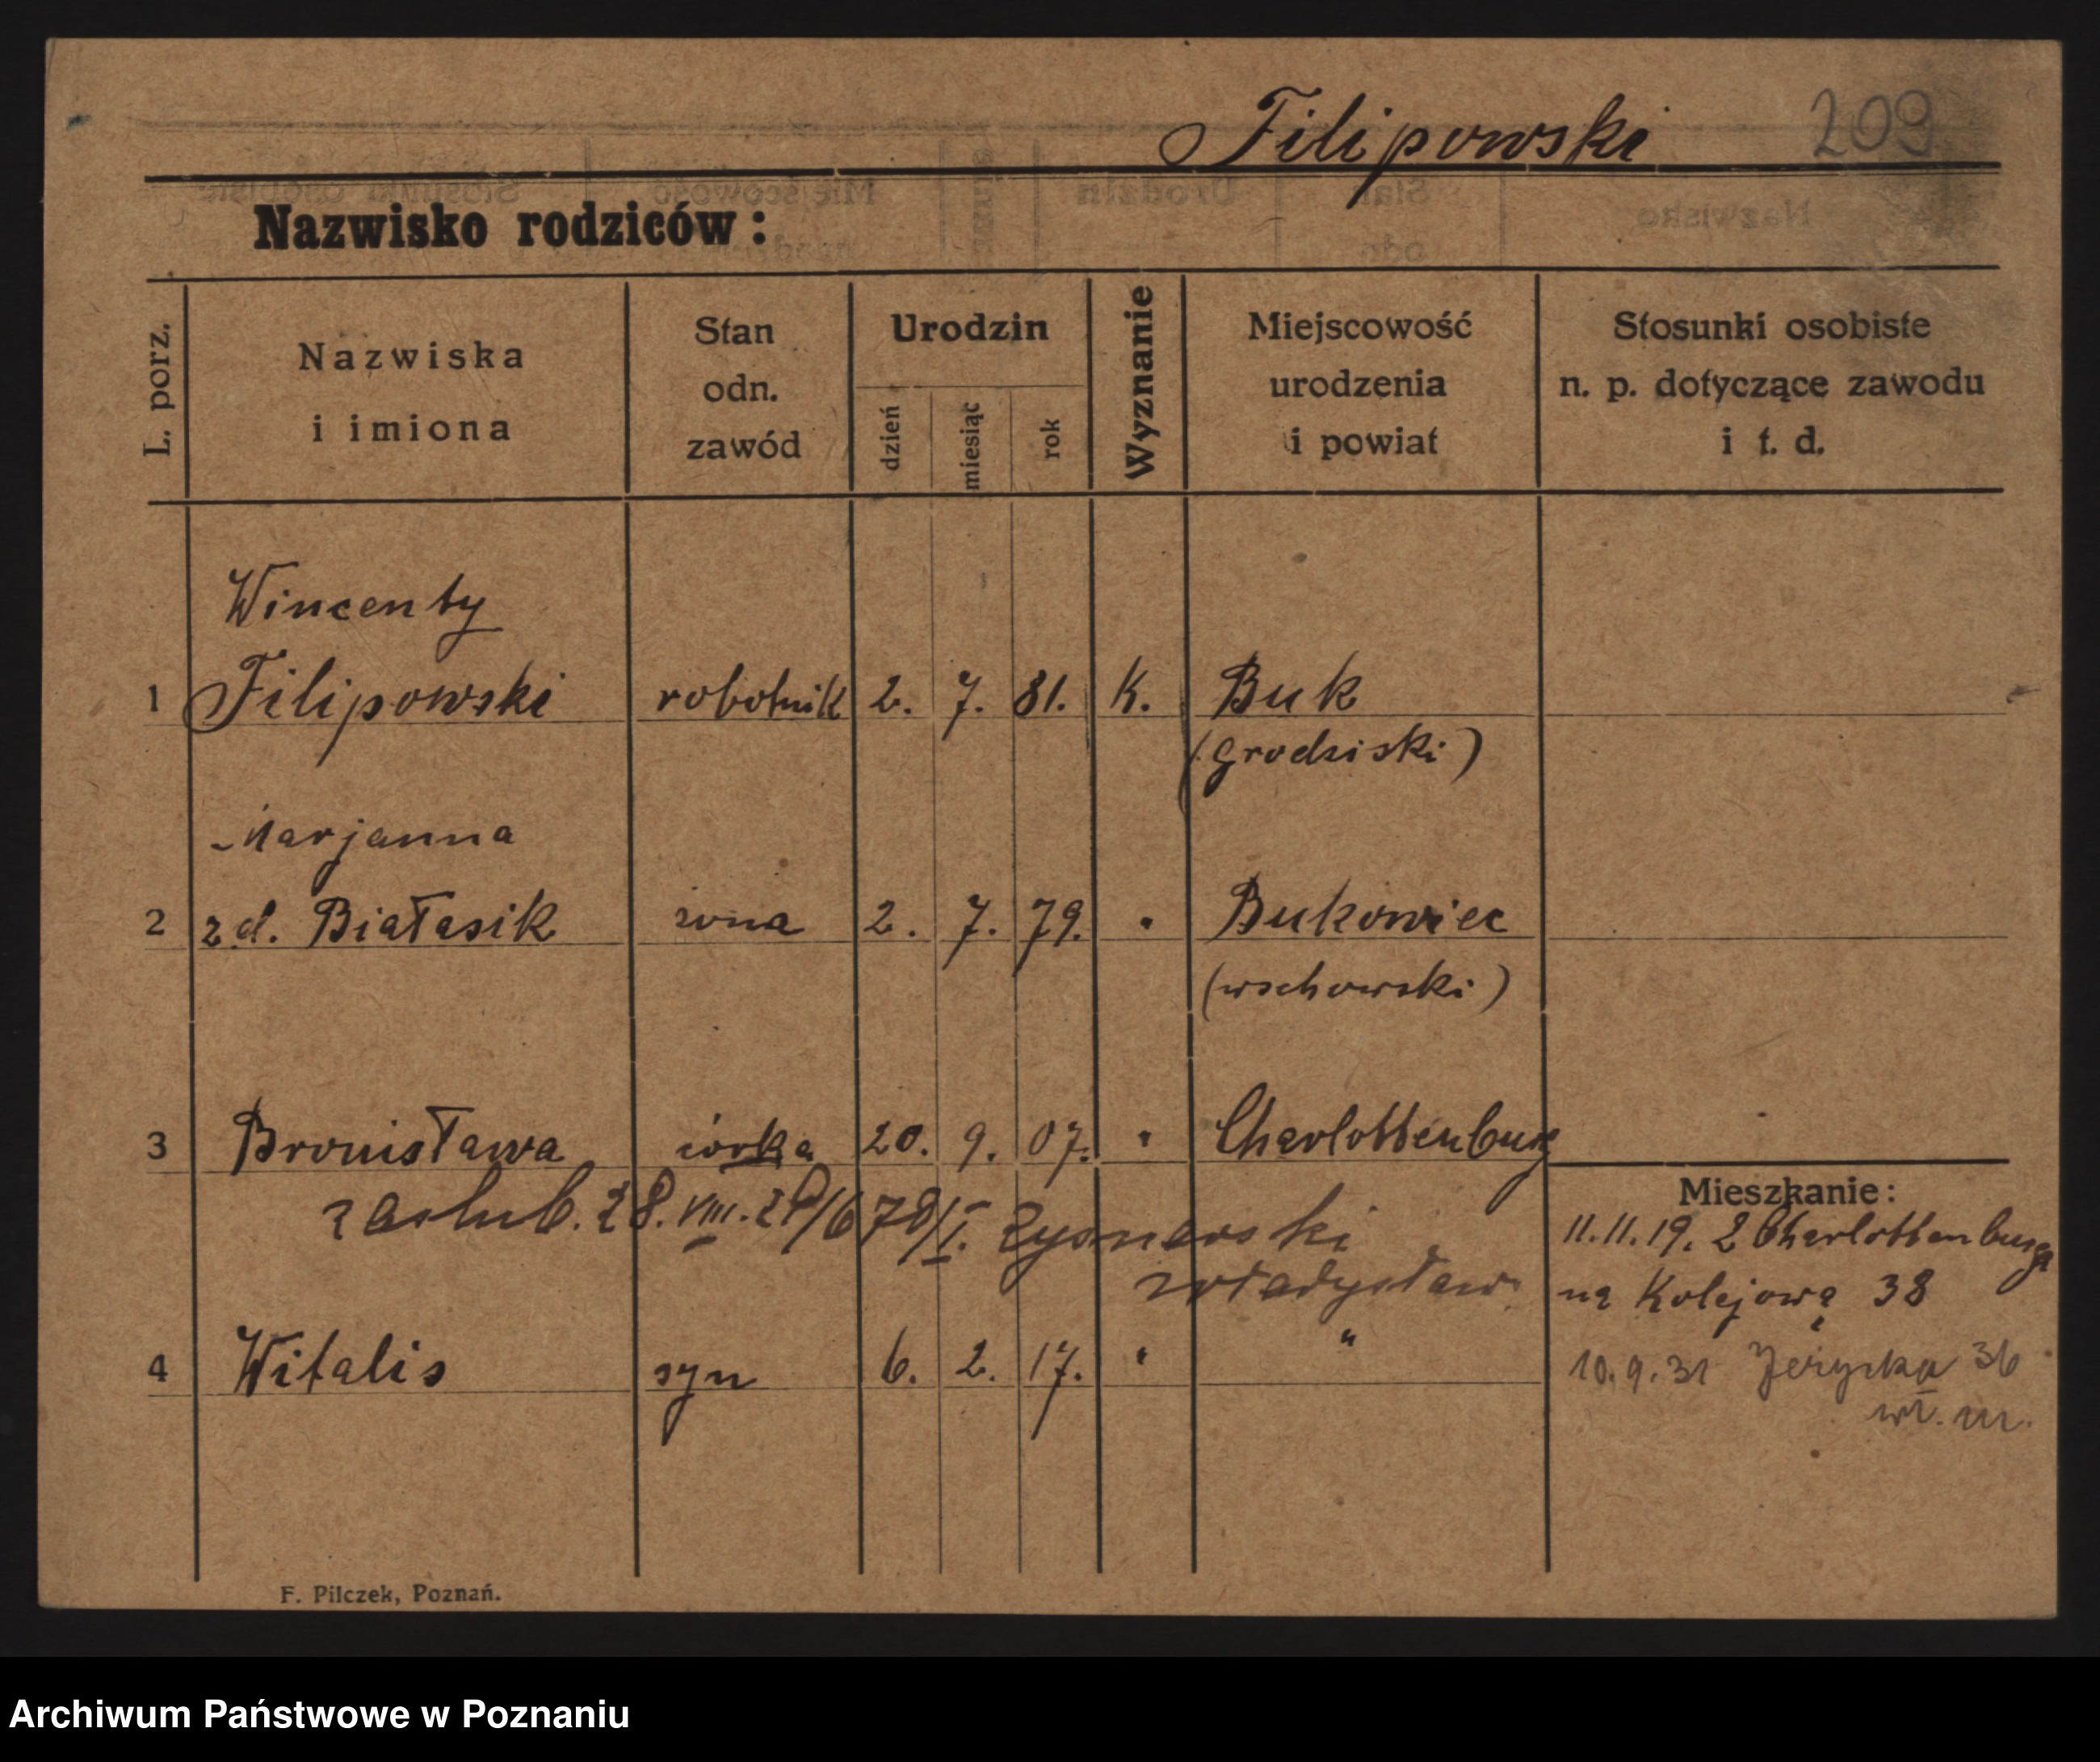 Filipowski 209
Nazwisko rodziców:
L. porz.
Nazwiska
i imiona
Stan
odn.
zawód
Urodzin
dzień
miesiąc
rok
Wyznanie
Miejscowość
urodzenia
i powiat
Stosunki osobiste
n. p. dotyczące zawodu
i t. d.
Wincenty
1 Filipowski robotnik 2. 7. 81. K. Buk
(grodziski)
Marjanna
2 zd. Białasik żona 2. 7. 79. " Bukowiec
(wschowski)
3 Bronisława córka 20. 9. 07. " Charlottenburg
zaślub. 28. VIII. 28/678/I.
Władysław
4 Witalis syn 6. 2. 17. " "
Mieszkanie:
11.11.19. z Charlottenburga
na Kolejową 38
10.9.31 Jeżycka 36
wł. m.
F. Pilczek, Poznań.
Archiwum Państwowe w Poznaniu